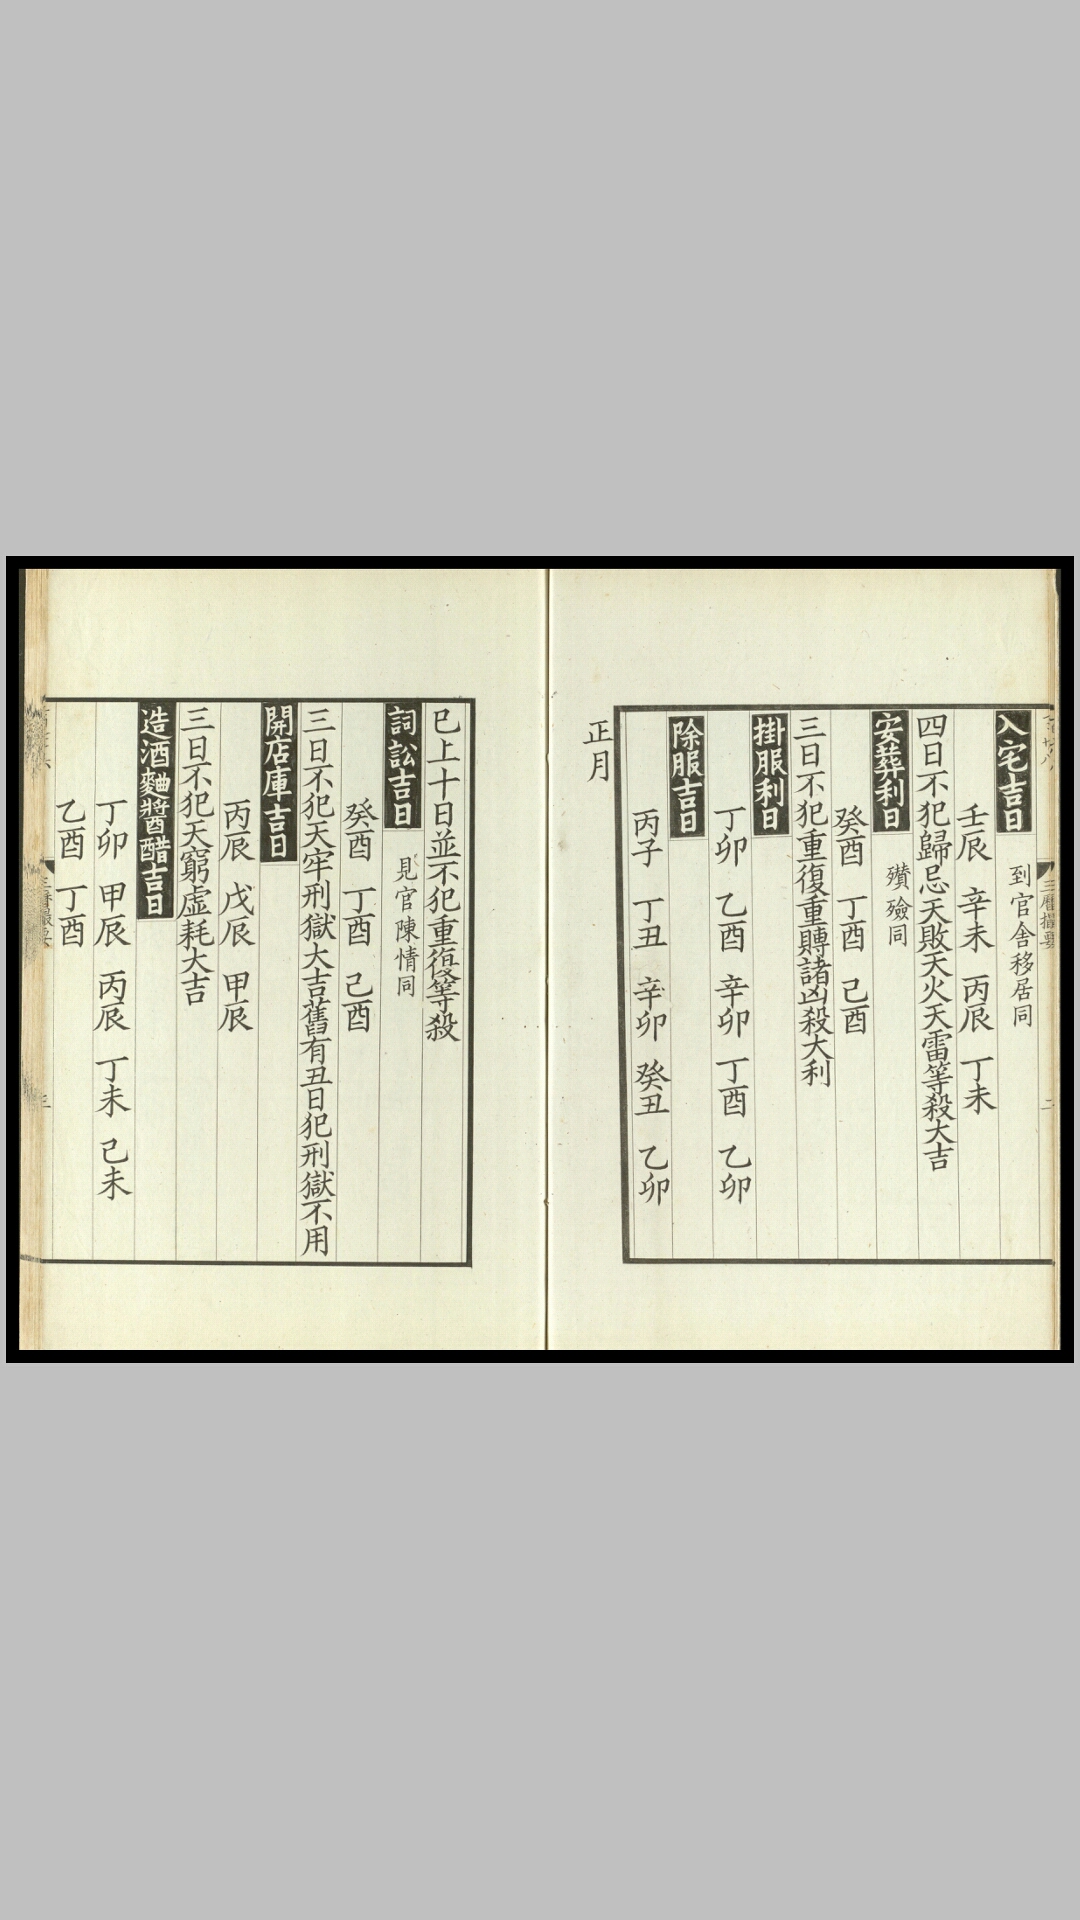 入宅吉日 到官舍移居同
壬辰 辛未 丙辰 丁未
四日不犯歸忌天敗天火天雷等殺大吉
安葬利日 殯殮同
癸酉 丁酉 己酉
三日不犯重復重賻諸凶殺大利
掛服利日
丁卯 乙酉 辛卯 丁酉 乙卯
除服吉日
丙子 丁丑 辛卯 癸丑 乙卯
正月
巳上十日並不犯重復等殺
詞訟吉日 見官陳情同
癸酉 丁酉 己酉
三日不犯天牢刑獄大吉舊有丑日犯刑獄不用
開店庫吉日
丙辰 戊辰 甲辰
三日不犯天窮虛耗大吉
造酒麯醬醋吉日
丁卯 甲辰 丙辰 丁未 己未
乙酉 丁酉